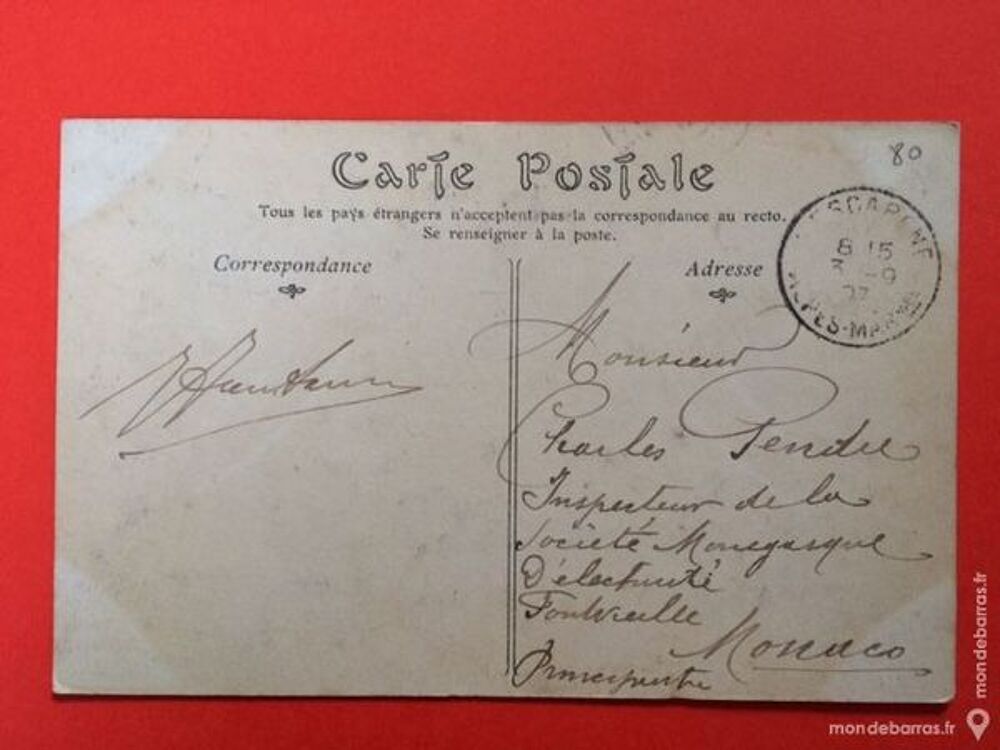 80
Carte Postale
Tous les pays étrangers n'acceptent pas la correspondance au recto.
Se renseigner à la poste.
Correspondance
Adresse
ESCARENE
8 15
9
07
ALPES-MARMES
Monsieur
Charles Pendre
Inspecteur de la
Société Monegasque
D'électricité
Fontvieille
Monaco
Principauté
mondebarras.fr
mondebarras.fr